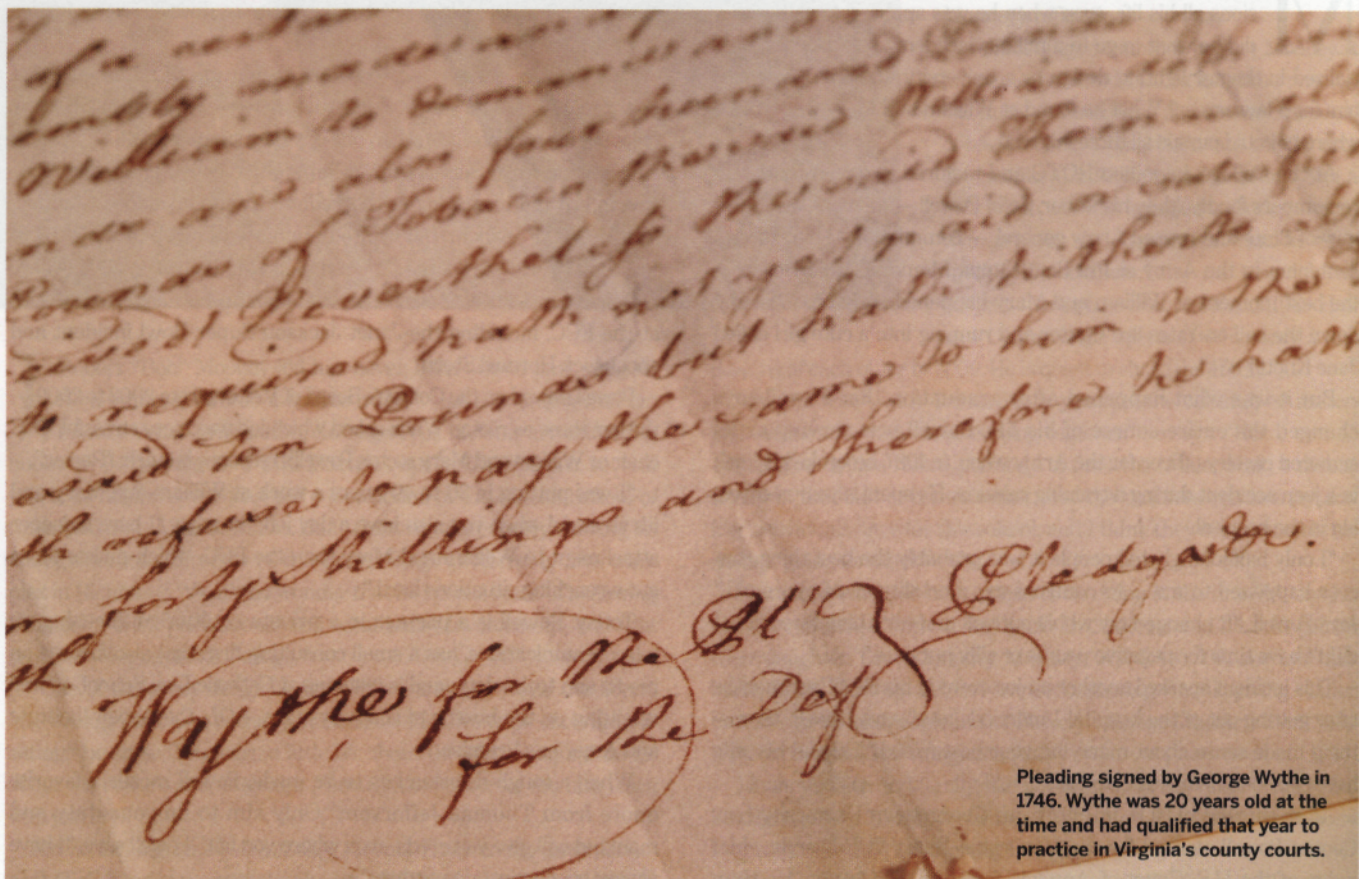 of a
embly made and
William to demand and
nds and also four hundred Pounds
Pounds of Tobacco the said William doth
ceived! Nevertheless the said Thomas
to required hath not yet paid or satisfied
esaid Ten Pounds but hath hitherto
th refuse to pay the same to him to the
m forty Shillings and therefore he hath
th
Wythe for the Pl'
for the Def
Pledges &c.
Pleading signed by George Wythe in
1746. Wythe was 20 years old at the
time and had qualified that year to
practice in Virginia's county courts.